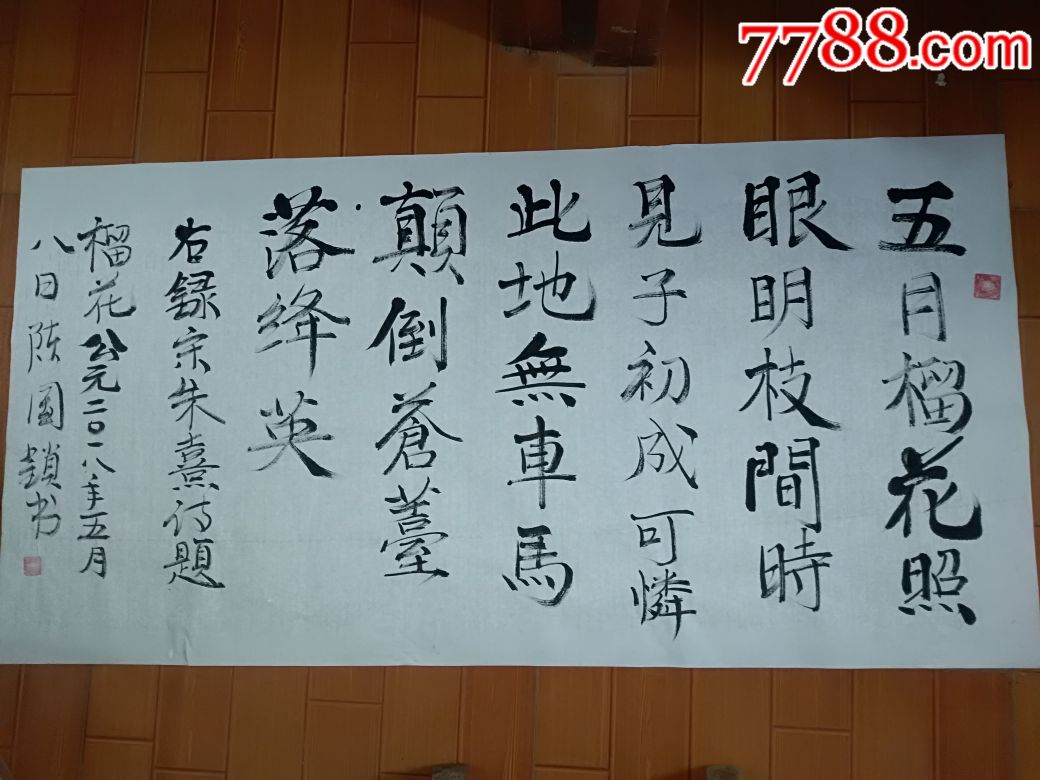 7788.com
五月榴花照
眼明枝間時
見子初成可憐
此地無車馬
顛倒蒼薹
落绛英
右録宗朱熹诗題
榴花公元二〇一八年五月
八日陈國鎖书